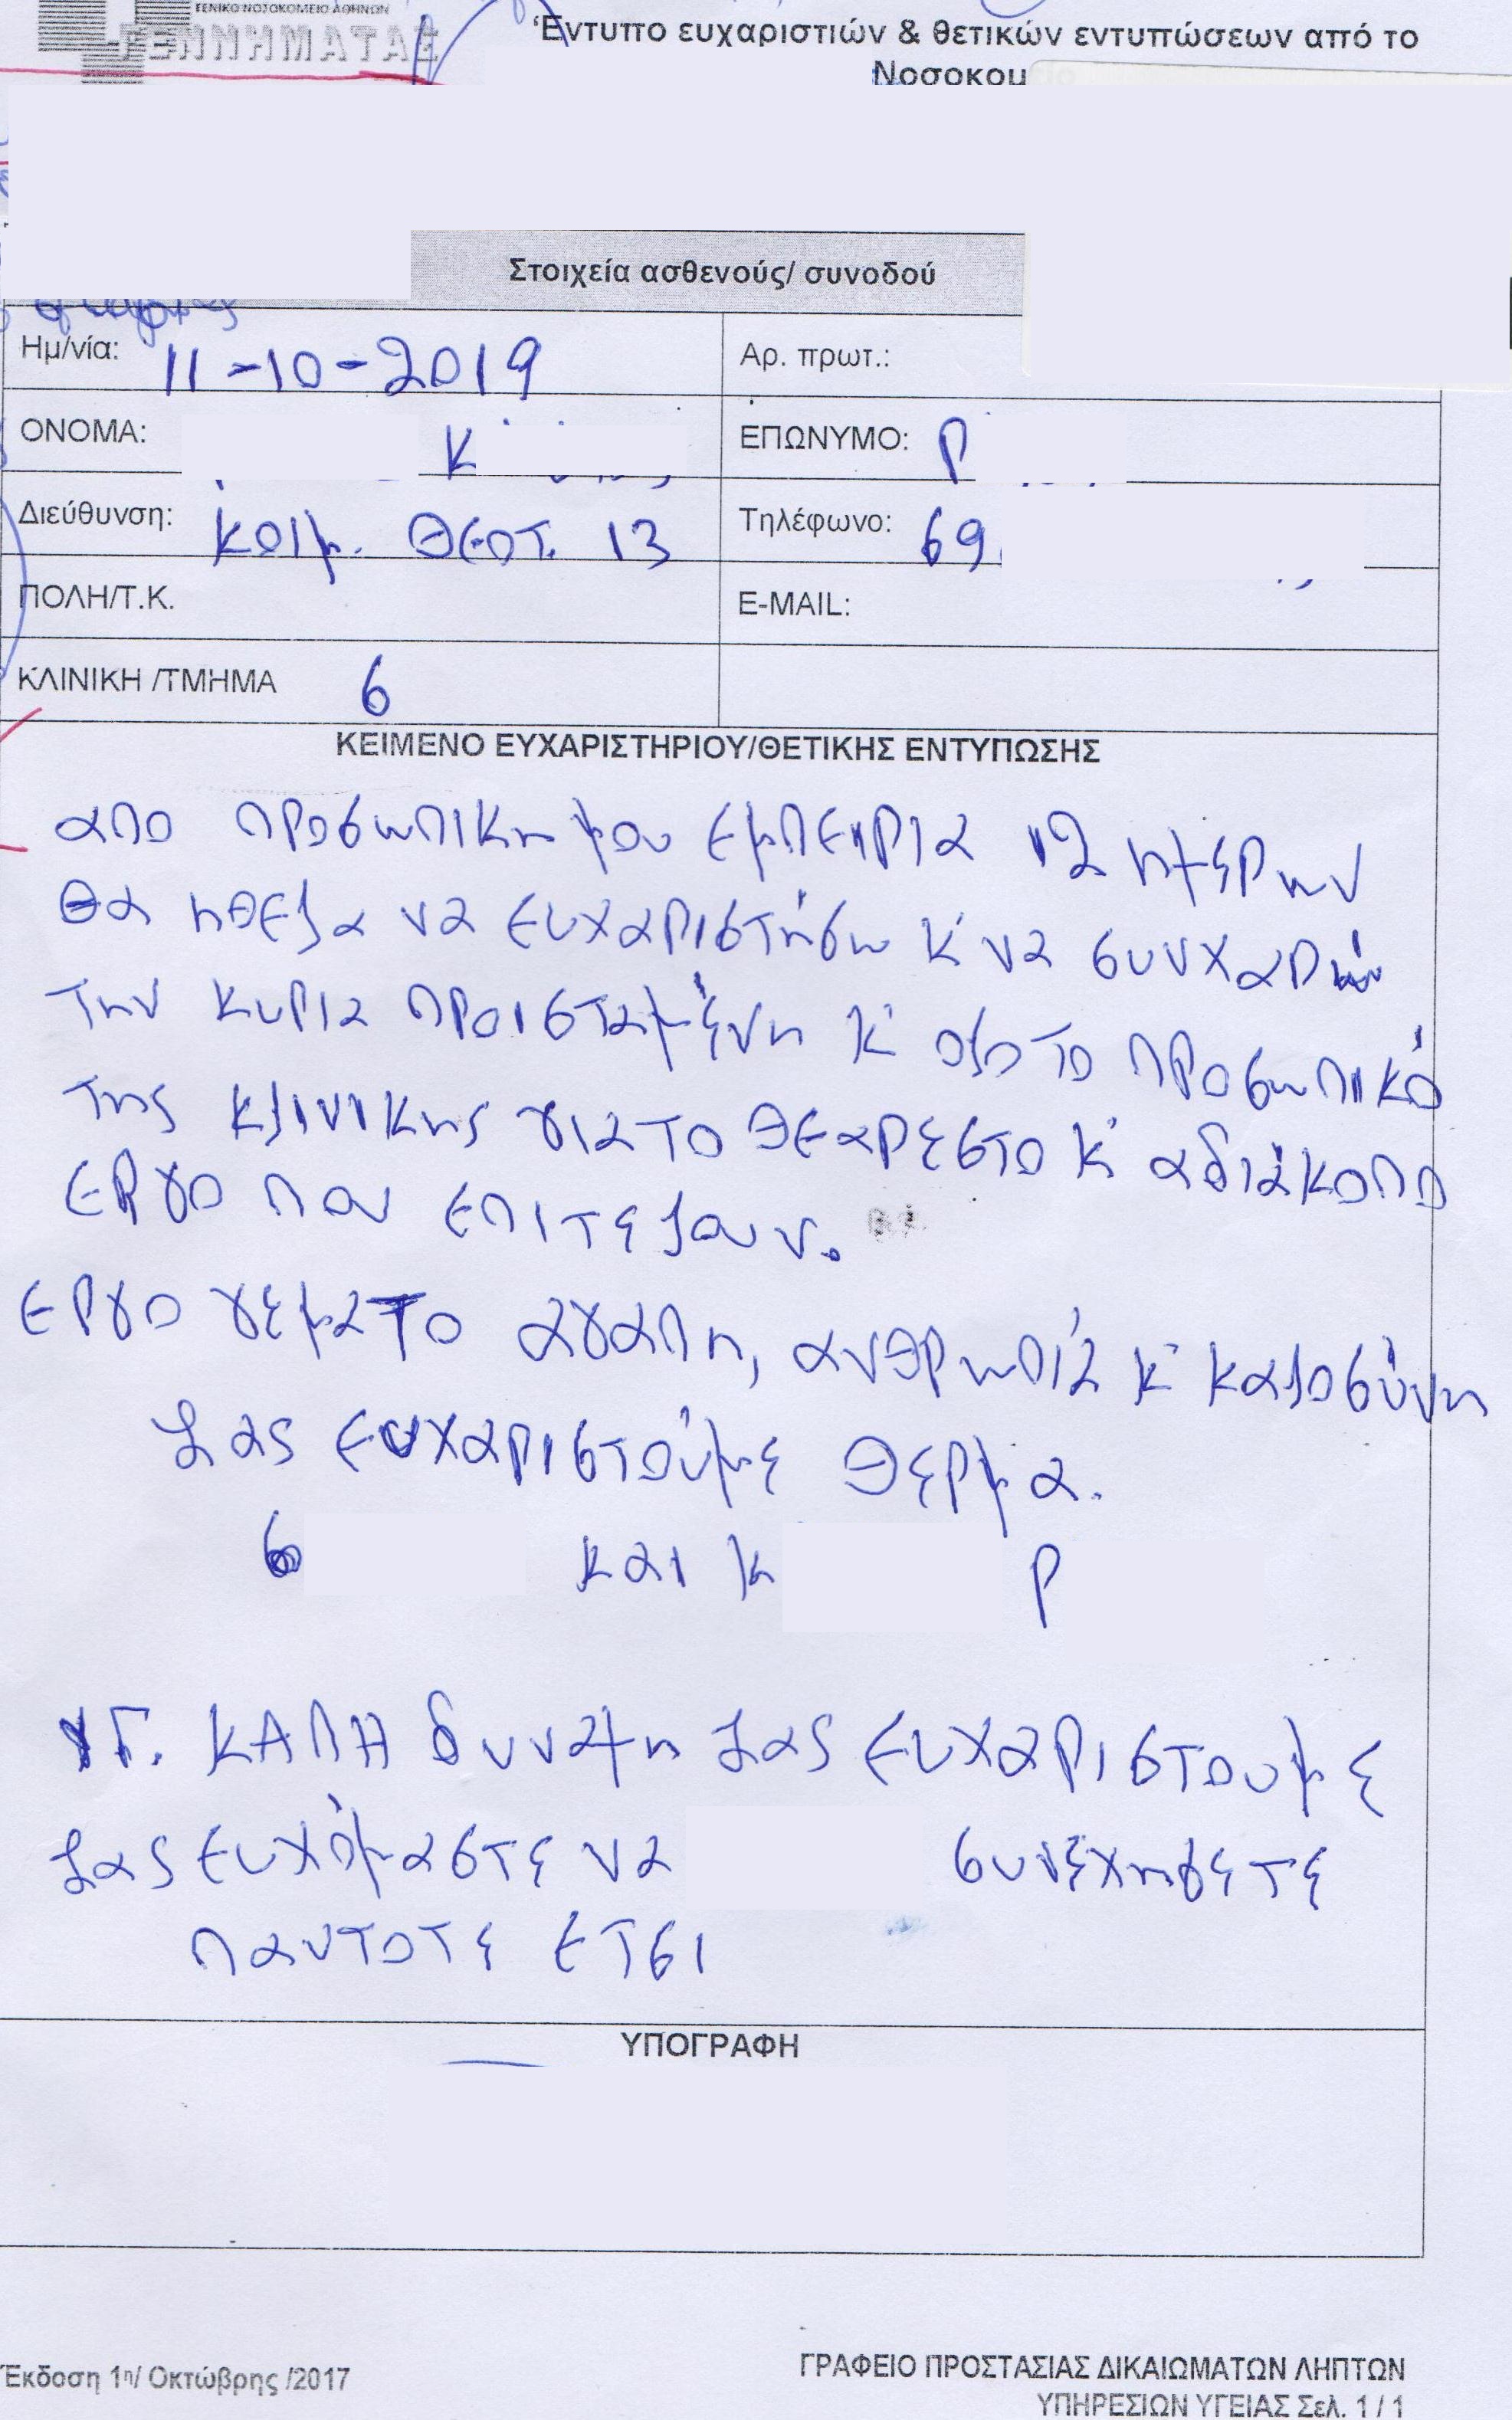 ΓΕΝΙΚΟ ΝΟΣΟΚΟΜΕΙΟ ΑΘΗΝΩΝ
ΓΕΝΝΗΜΑΤΑΣ
Έντυπο ευχαριστιών & θετικών εντυπώσεων από το
Νοσοκομείο
Στοιχεία ασθενούς/ συνοδού
Ημ/νία: 11-10-2019 Αρ. πρωτ.:
ΟΝΟΜΑ: Κ ΕΠΩΝΥΜΟ: Ρ
Διεύθυνση: Κοιμ. Θεοτ. 13 Τηλέφωνο: 69
ΠΟΛΗ/Τ.Κ. E-MAIL:
ΚΛΙΝΙΚΗ /ΤΜΗΜΑ 6
ΚΕΙΜΕΝΟ ΕΥΧΑΡΙΣΤΗΡΙΟΥ/ΘΕΤΙΚΗΣ ΕΝΤΥΠΩΣΗΣ
απο προσωπικη μου εμπειρια 12 ημερων
θα ηθελα να ευχαριστήσω κ' να συγχαρώ
την κυρια προισταμένη κ' ολο το προσωπικό
της κλινικης για το θεαρεστο κ' αδιάκοπο
εργο που επιτελουν.
εργο γεματο αγαπη, ανθρωπιά κ' καλοσύνη
Σας ευχαριστούμε θερμα.
και κ Ρ
ΥΓ. ΚΑΛΗ δυναμη Σας ευχαριστουμε
Σας ευχόμαστε να συνεχησετε
παντοτε ετσι
ΥΠΟΓΡΑΦΗ
Έκδοση 1η/ Οκτώβρης /2017
ΓΡΑΦΕΙΟ ΠΡΟΣΤΑΣΙΑΣ ΔΙΚΑΙΩΜΑΤΩΝ ΛΗΠΤΩΝ
ΥΠΗΡΕΣΙΩΝ ΥΓΕΙΑΣ Σελ. 1 / 1